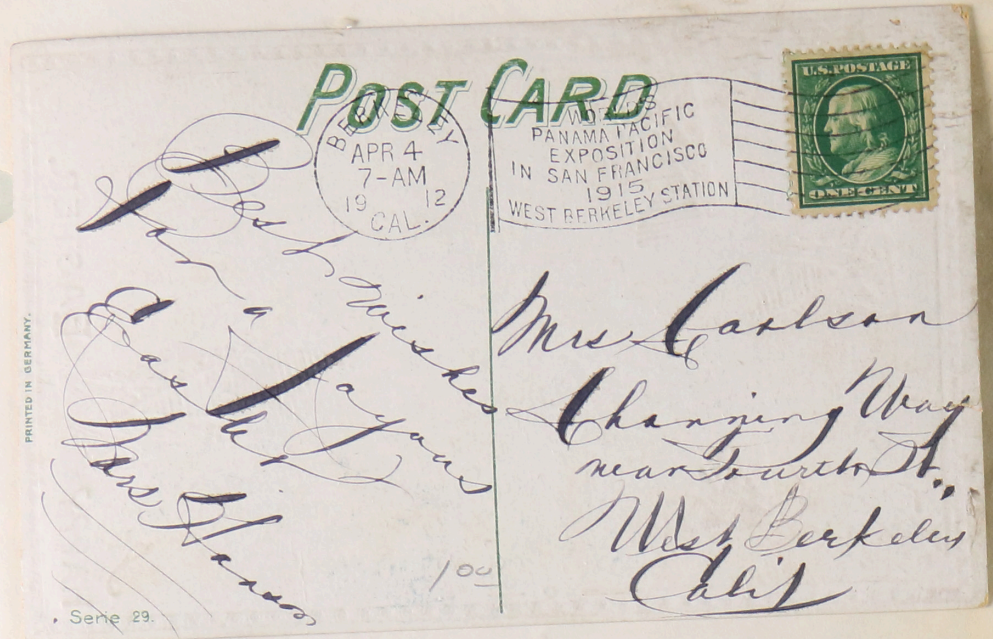 POST CARD
BERKELEY
APR 4
7-AM
19 12
CAL.
WORLD'S
PANAMA PACIFIC
EXPOSITION
IN SAN FRANCISCO
1915
WEST BERKELEY STATION
U.S. POSTAGE
ONE CENT
Best wishes
For a Joyous
Easter
Mrs
Mrs Carlson
Channing Way
near Fourth St.,
West Berkeley
Calif
PRINTED IN GERMANY.
1 00
Serie 29.